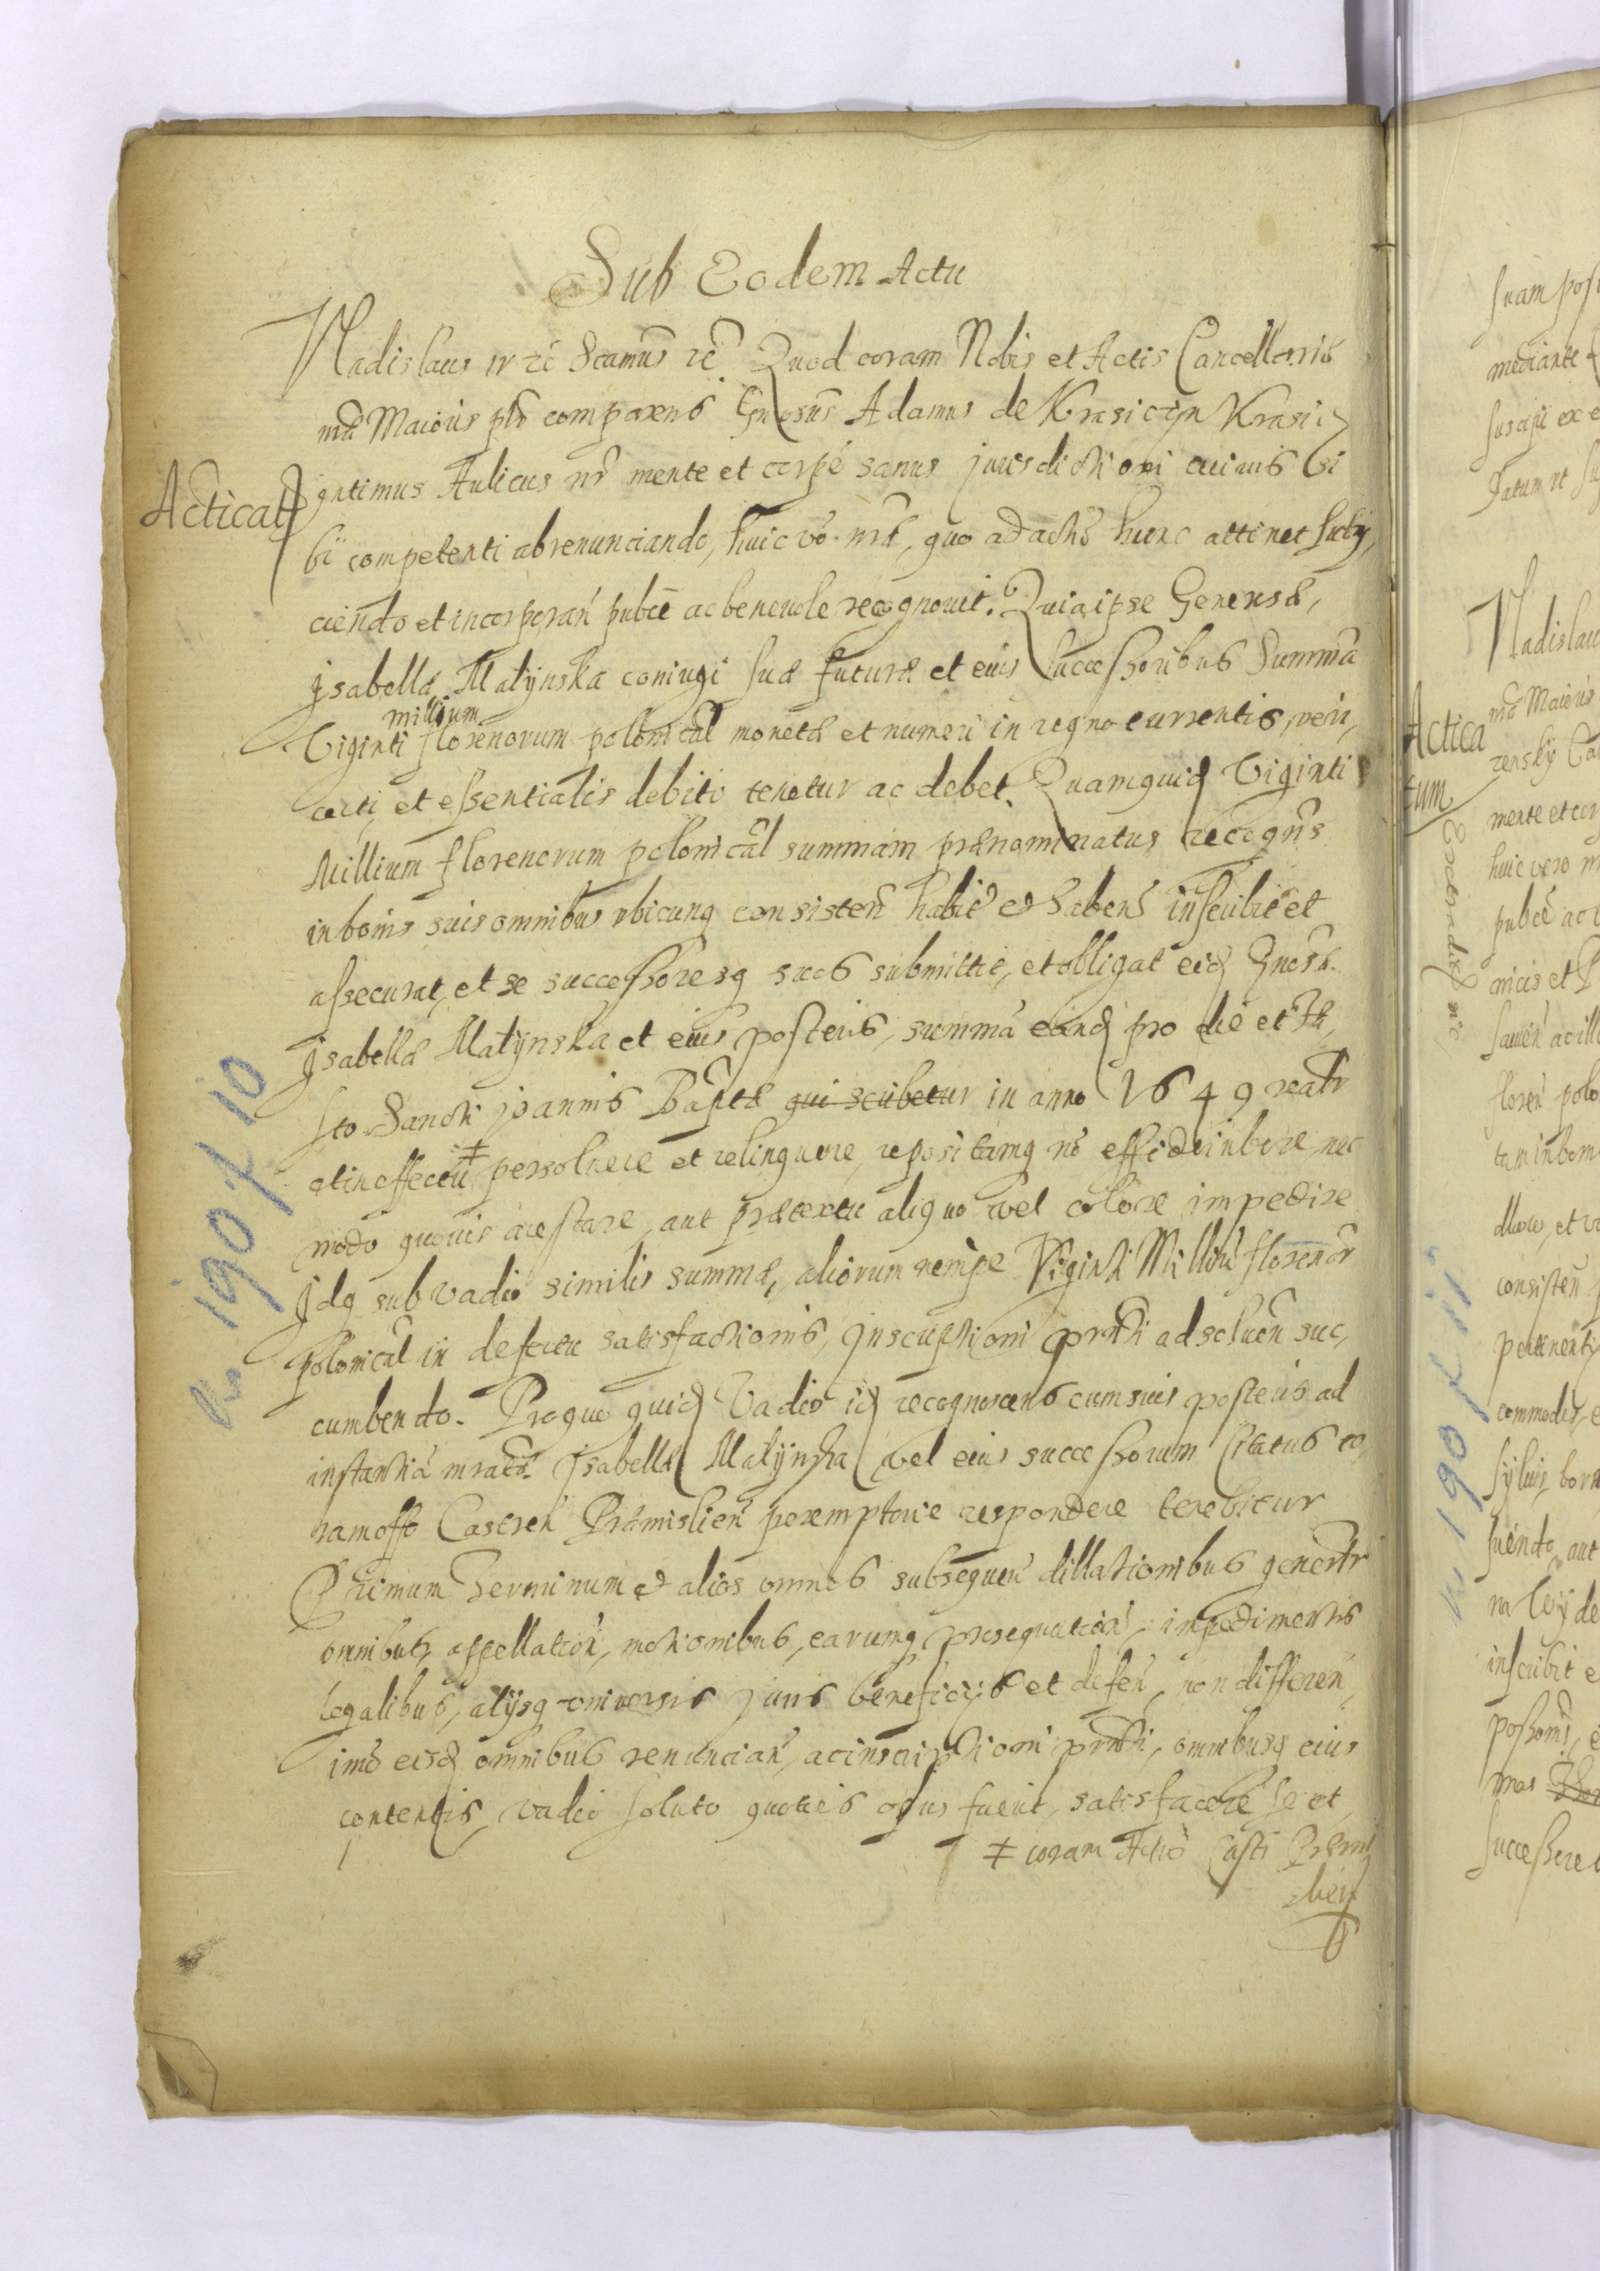 Sub Eodem Actu
Vladislaus IV etc Sctamus etc Quod coram Nobis et Actis Cancellariis
nris Maioris plr comparens Gnosus Adamus de Krasiczyn Krasic
Acticat
intimus Aulicus nr mente et corpe sanus jurisdictioni cuivis si
bi competenti abrenunciando, huic vo nrae, quo ad actu hunc attinet subij,
ciendo et incorporan publce ac benevole recognovit. Quia ipse Generosae,
Isabellae Małynska coniugi suae futurae et eius successoribus Summa
millium
Viginti florenorum polonical monetae et numeri in regno currentis, veri,
certi, et essentialis debiti tenetur ac debet. Quamquid Viginti
Millium florenorum polonical summam praenominatus recogns
in bonis suis omnibus ubicunq consisten habit et haben inscribit et
assecurat, et se successoresq suos submittit, et obligat eid Gnosae
Isabellae Małynska et eius posteris, summa eand pro die et fe,
sto Sancti Joannis Baptae qui scribetur in anno 1649 realr
et in effectu ≠ persolvere et relinquere, repositamq no effidvinbere, nec
modo quovis arestare, aut praetextu aliquo vel colore impedire
Idq sub vadio similis summae, aliorum nempe Viginti Milliu florenor
polonical in defectu satisfactionis, Inscriptioni prnti ad solven suc,
cumbendo. Pro quo quid Vadio id recognoscens cum suis posteris ad
instantia mratae Isabellae Małynska vel eius successorum Citatus co,
ram offo Castren Praemislien peremptorie respondere tenebitur
Primum Terminum et alios omnes subsequen dillationibus generlr
omnibus, appellation, motionibus, earumq prosequution, impedimentis
legalibus, alijsq universis juris beneficijs et defen, non differen,
imo eisd omnibus renuncian, ac inscriptioni prnti, omnibusq eius
contentis, vadio soluto quoties opus fuerit, satisfacere se et
≠ coram Actis Casti Praemi
slien
n 190 f 10
suam poss
mediante
suscipi ex e
Datum ut su
Vladislau
nrae Maioris
Actica
tum
Extradit
mente et cor
huic vero n
publce ac b
amicis et P
floren polo
tum in bon
consisten
pertinenty
commodis, e
n 190 f 11
inscribit e
successore